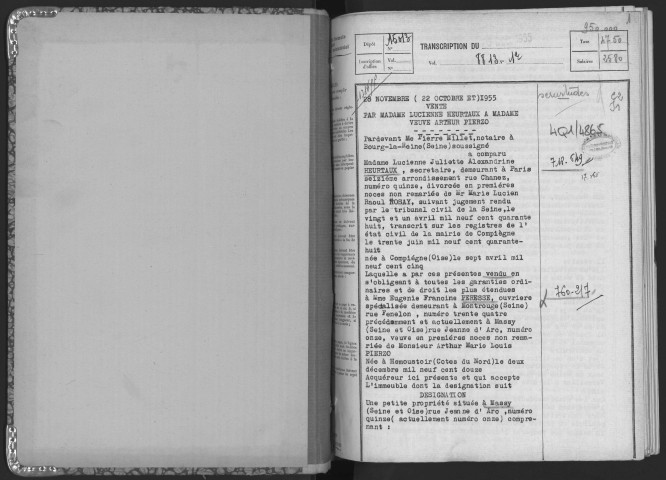 Dépôt N°
Inscription d'office Vol. N°
TRANSCRIPTION DU
Vol.
Taxe
Salaire
28 NOVEMBRE ( 22 OCTOBRE ET)1955
VENTE
PAR MADAME LUCIENNE HEURTAUX A MADAME
VEUVE ARTHUR PIERZO
Pardevant Me Pierre Millet,notaire à
Bourg-la-Reine(Seine)soussigné
a comparu
Madame Lucienne Juliette Alexandrine
HEURTAUX , secretaire, demeurant à Paris
seizième arrondissement rue Chanez,
numéro quinze, divorcée en premières
noces non remariée de Mr Marie Lucien
Raoul , suivant jugement rendu
par le tribunal civil de la Seine,le
vingt et un avril mil neuf cent quarante
huit, transcrit sur les registres de l'
état civil de la mairie de Compiègne
le trente juin mil neuf cent quarante-
huit
née à Compiègne(Oise)le sept avril mil
neuf cent cinq
Laquelle a par ces présentes vendu en
s'obligeant à toutes les garanties ordi-
naires et de droit les plus étendues
à Mme Eugenie Francine , ouvriere
spécialisée demeurant à Montrouge(Seine)
rue Fenelon , numéro trente quatre
précédemment et actuellement à Massy
(Seine et Oise)rue Jeanne d' Arc, numéro
onze, veuve en premières noces non rema-
riée de Monsieur Arthur Marie Louis
PIERZO
Née à Hemonstoir(Cotes du Nord)le deux
décembre mil neuf cent douze
Acquéreur ici présente et qui accepte
L'immeuble dont la designation suit
DESIGNATION
Une petite propriété située à Massy
(Seine et Oise)rue Jeanne d' Arc ,numéro
quinze( actuellement numéro onze) compre-
nant :
4Q1/4865
760-217